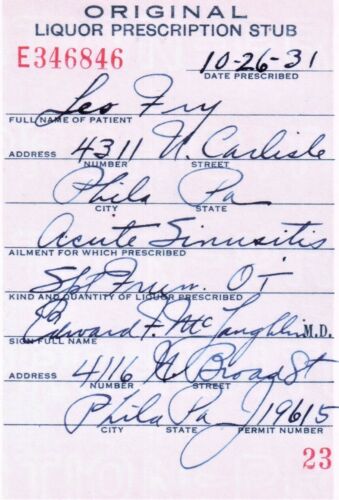 ORIGINAL
LIQUOR PRESCRIPTION STUB
E346846
10-26-31
DATE PRESCRIBED
Leo Fry
FULL NAME OF PATIENT
ADDRESS 4311 N. Carlisle
NUMBER STREET
Phila Pa
CITY STATE
Acute Sinusitis
AILMENT FOR WHICH PRESCRIBED
Spt Frum. OT
KIND AND QUANTITY OF LIQUOR PRESCRIBED
Edward F. McLaughlin M.D.
SIGN FULL NAME
ADDRESS 4116 N Broad St
NUMBER STREET
Phila Pa 19615
CITY STATE PERMIT NUMBER
23